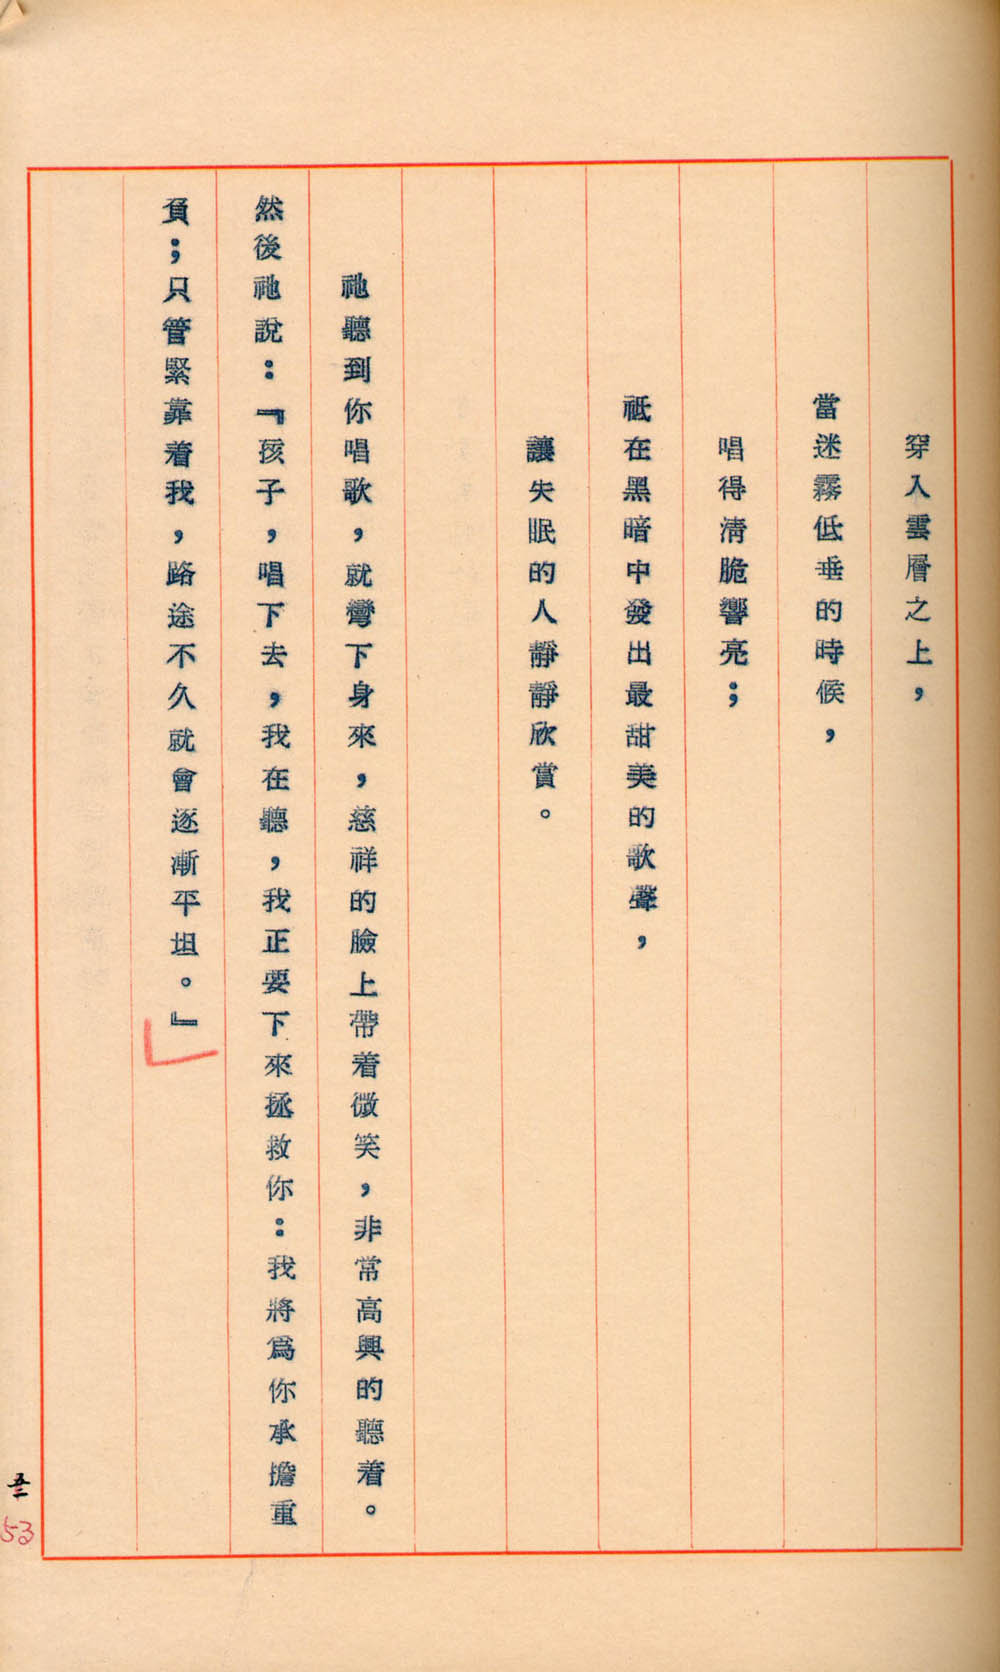 穿入雲層之上，
當迷霧低垂的時候，
唱得清脆響亮；
祗在黑暗中發出最甜美的歌聲，
讓失眠的人靜靜欣賞。
祂聽到你唱歌，就彎下身來，慈祥的臉上帶着微笑，非常高興的聽着。
然後祂說：『孩子，唱下去，我在聽，我正要下來拯救你：我將爲你承擔重
負；只管緊靠着我，路途不久就會逐漸平坦。』
53